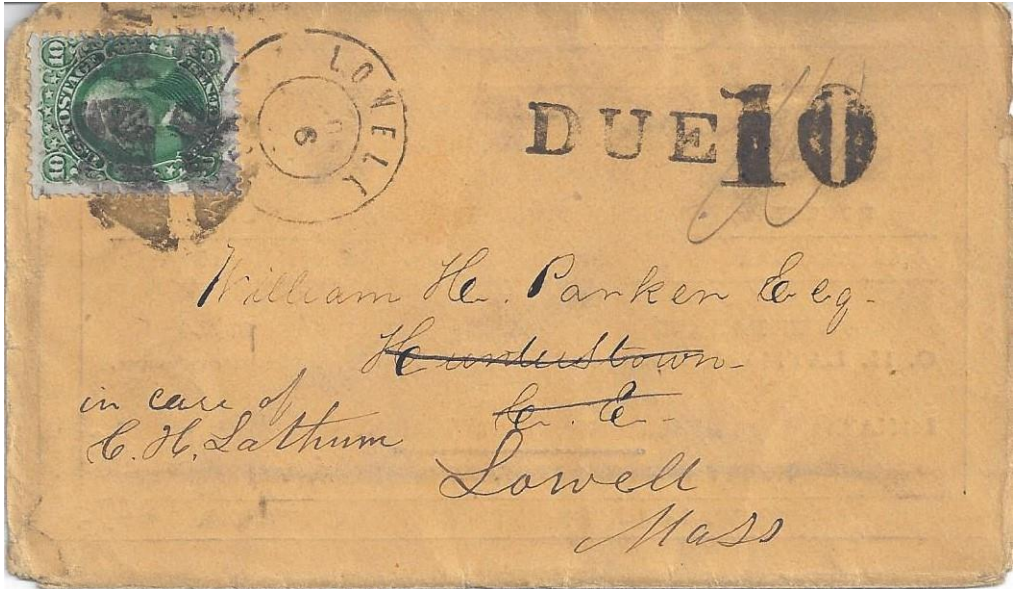 10 U.S. POSTAGE 10
LOWELL
6
DUE 10
William H. Parker Esq.
Hunterstown
C. E.
in care of
C. H. Lathum
Lowell
Mass